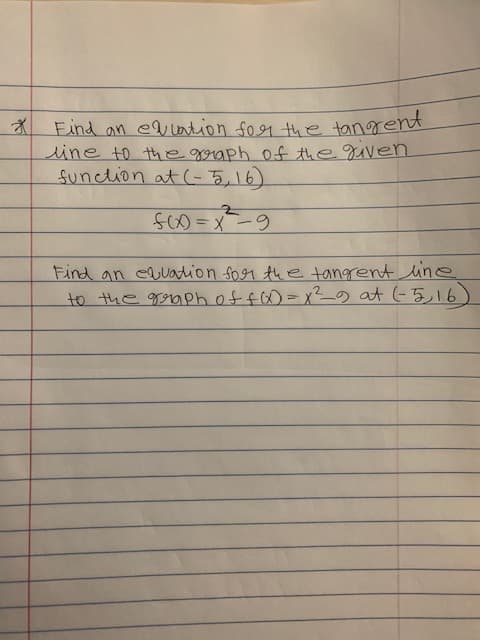 * Find an equation for the tangent
line to the graph of the given
function at (-5,16)
f(x) = x² - 9
Find an equation for the tangent line
to the graph of f(x) = x² - 9 at (-5,16)